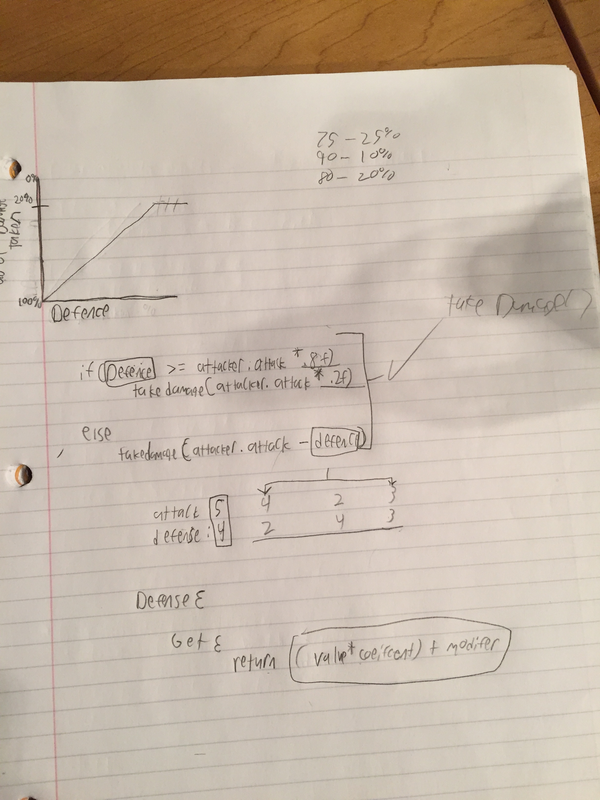 75 - 25%
90 - 10%
80 - 20%
0%
20%
100%
Defence
take Damage()
if (Defence >= attacker.attack * .8f)
take damage(attacker.attack * .2f)
else
takedamage(attacker.attack - defence)
attack 5 4 2 3
defense: 4 2 4 3
Defense {
Get {
return (value * coeificent) + modifer